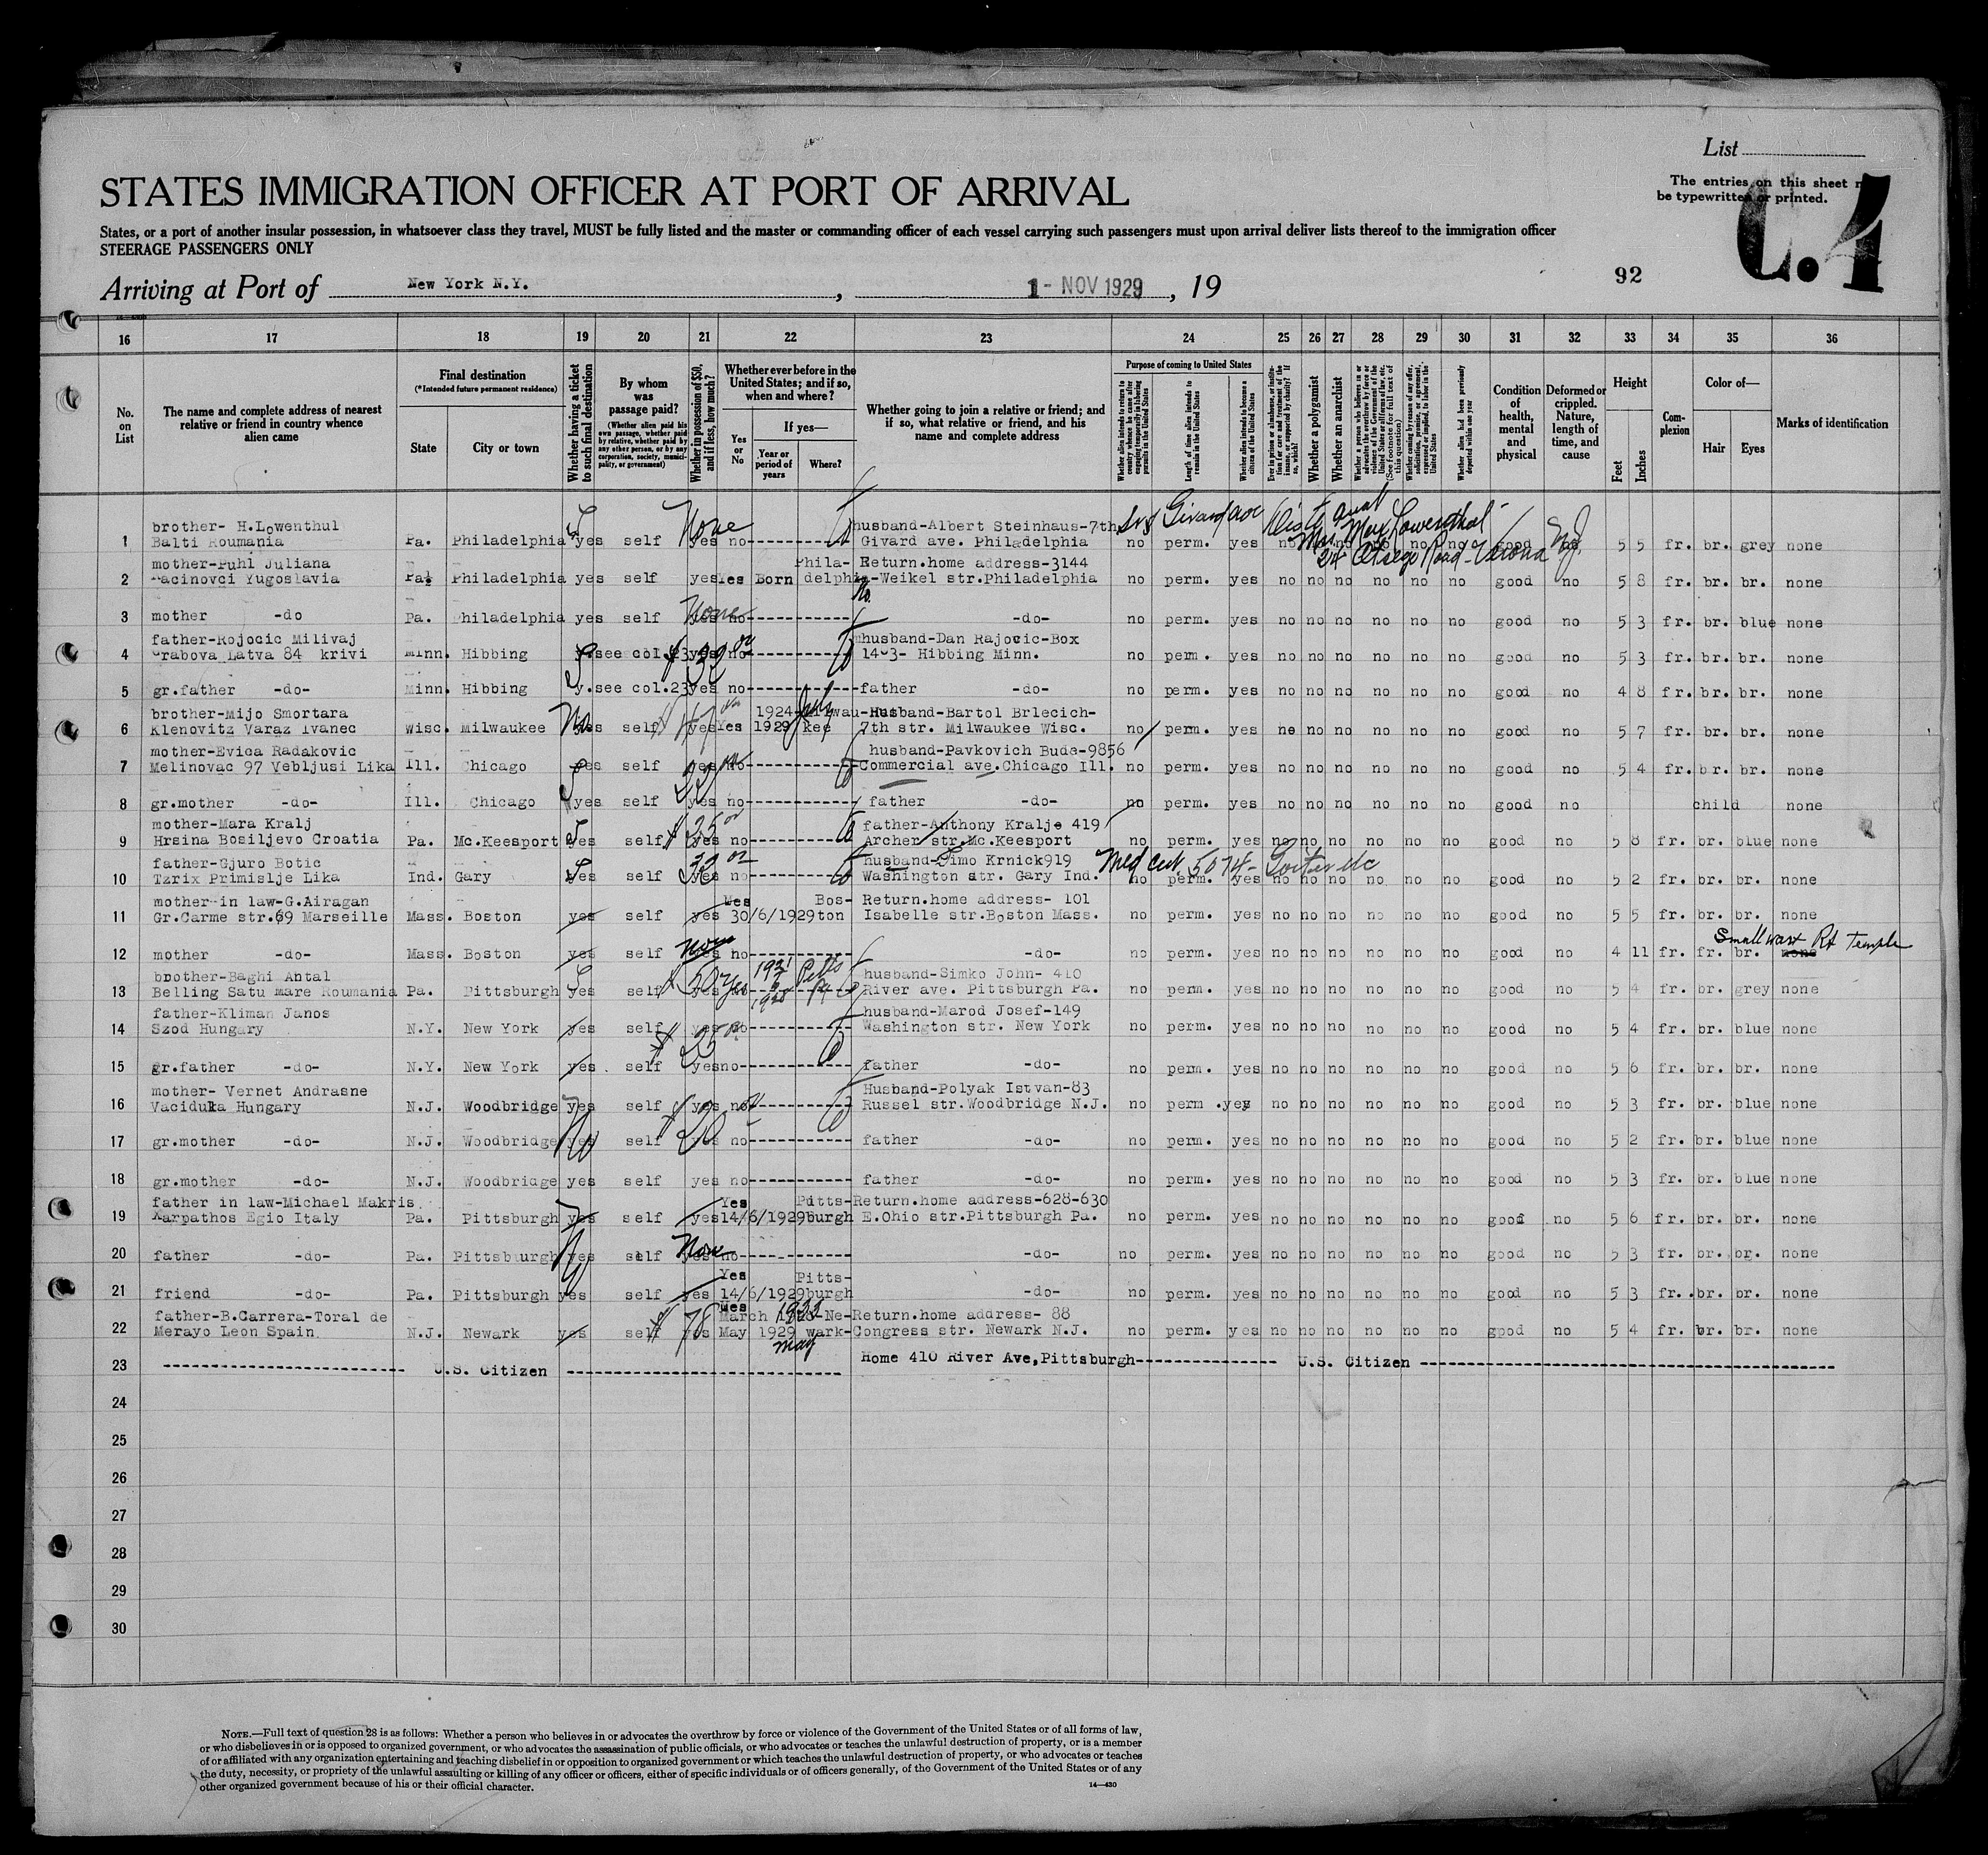 List
The entries on this sheet
be typewritten or printed.
C.4
STATES IMMIGRATION OFFICER AT PORT OF ARRIVAL
States, or a port of another insular possession, in whatsoever class they travel, MUST be fully listed and the master or commanding officer of each vessel carrying such passengers must upon arrival deliver lists thereof to the immigration officer
STEERAGE PASSENGERS ONLY
Arriving at Port of New York N.Y., 1- NOV 1929, 19
92
16 17 18 19 20 21 22 23 24 25 26 27 28 29 30 31 32 33 34 35 36
No. on List
The name and complete address of nearest relative or friend in country whence alien came
Final destination
(*Intended future permanent residence)
State
City or town
Whether having a ticket to such final destination
By whom was passage paid?
(Whether alien paid his own passage, whether paid by relative, whether paid by any other person, or by any corporation, society, municipality, or government)
Whether in possession of $50, and if less, how much?
Whether ever before in the United States; and if so, when and where?
Yes or No
If yes—
Year or period of years
Where?
Whether going to join a relative or friend; and if so, what relative or friend, and his name and complete address
Purpose of coming to United States
Whether alien intends to return to country whence he came after engaging temporarily in laboring pursuits in the United States
Length of time alien intends to remain in the United States
Whether alien intends to become a citizen of the United States
Whether a polygamist
Whether an anarchist
Condition of health, mental and physical
Deformed or crippled. Nature, length of time, and cause
Height
Feet
Inches
Complexion
Color of—
Hair
Eyes
Marks of identification
None
Girard ave
Mrs. Max Lowenthal
24 Otsego Road - Verona
brother- H.Lowenthul husband-Albert Steinhaus-7th
1 Balti Roumania Pa. Philadelphia yes self yes no Givard ave. Philadelphia no perm. yes no no no no no no good 5 5 fr. br. grey none
mother-Puhl Juliana Phila- Return.home address-3144
2 Pacinovci Yugoslavia Pa. Philadelphia yes self yes Yes Born delphia-Weikel str.Philadelphia no perm. yes no no no no no no good no 5 8 fr. br. br. none
No.
3 mother -do Pa. Philadelphia yes self yes None no -do- no perm. yes no no no no no no good no 5 3 fr. br. blue none
father-Rojocic Milivaj husband-Dan Rajovic-Box
4 Grabova Latva 84 krivi Minn. Hibbing y.see col.23 yes no 1403- Hibbing Minn. no perm. yes no no no no no no good no 5 3 fr. br. br. none
5 gr.father -do- Minn. Hibbing y.see col.23 yes no father -do- no perm. yes no no no no no no good no 4 8 fr. br. br. none
brother-Mijo Smortara 1924 July Milwau- Husband-Bartol Brlecich-
6 Klenovitz Varaz Ivanec Wisc. Milwaukee No yes self 47 yes Yes 1929 kee 7th str. Milwaukee Wisc. no perm. yes no no no no no no good no 5 7 fr. br. br. none
mother-Evica Radakovic husband-Pavkovich Bude-9856
7 Melinovac 97 Vebljusi Lika Ill. Chicago yes self yes no Commercial ave.Chicago Ill. no perm. yes no no no no no no good no 5 4 fr. br. br. none
8 gr.mother -do- Ill. Chicago yes self yes no father -do- no perm. yes no no no no no no good no child none
mother-Mara Kralj $25 father-Anthony Kralje 419
9 Hrsina Bosiljevo Croatia Pa. Mc.Keesport yes self yes no Archer str.Mc.Keesport no perm. yes no no no no no no good no 5 8 fr. br. blue none
father-Gjuro Botic husband-Simo Krnick919 Med cert. 5074- Goiter etc
10 Tzrix Primislje Lika Ind. Gary yes self yes no Washington str. Gary Ind. no perm. yes no no no no no no good no 5 2 fr. br. br. none
mother-in law-G.Airagan Yes Bos- Return.home address- 101
11 Gr.Carme str.69 Marseille Mass. Boston yes self yes 30/6/1929 ton Isabelle str.Boston Mass. no perm. yes no no no no no no good no 5 5 fr. br. br. none
Small wart Rt Temple
12 mother -do- Mass. Boston yes self None yes no -do- no perm. yes no no no no no no good no 4 11 fr. fr. br. none
brother-Baghi Antal $50 Yes 1921 1928 Pitts Pa husband-Simko John- 410
13 Belling Satu mare Roumania Pa. Pittsburgh yes self yes no River ave. Pittsburgh Pa. no perm. yes no no no no no no good no 5 4 fr. br. grey none
father-Kliman Janos husband-Marod Josef-149
14 Szod Hungary N.Y. New York yes self yes no Washington str. New York no perm. yes no no no no no no good no 5 4 fr. br. blue none
$25
15 gr.father -do- N.Y. New York yes. self yes no father -do- no perm. yes no no no no no no good no 5 6 fr. br. br. none
mother- Vernet Andrasne Husband-Polyak Istvan-83
16 Vaciduka Hungary N.J. Woodbridge yes self yes no Russel str.Woodbridge N.J. no perm. yes no no no no no no good no 5 3 fr. br. blue none
$20
17 gr.mother -do- N.J. Woodbridge yes No self yes no father -do- no perm. yes no no no no no no good no 5 2 fr. br. blue none
18 gr.mother -do- N.J. Woodbridge yes self yes no father -do- no perm. yes no no no no no no good no 5 3 fr. br. blue none
father in law-Michael Makris Yes Pitts- Return.home address-628-630
19 Karpathos Egio Italy Pa. Pittsburgh yes self yes 14/6/1929 burgh E.Ohio str.Pittsburgh Pa. no perm. yes no no no no no no good no 5 6 fr. br. br. none
20 father -do- Pa. Pittsburgh yes self None yes no -do- no perm. yes no no no no no no good no 5 3 fr. br. br. none
Yes Pitts-
21 friend -do- Pa. Pittsburgh yes self yes 14/6/1929 burgh -do- no perm. yes no no no no no no good no 5 3 fr. br. br. none
father-B.Carrera-Toral de Yes March Ne- Return.home address- 88
22 Merayo Leon Spain. N.J. Newark yes self $78 yes May 1929 wark- Congress str. Newark N.J. no perm. yes no no no no no no good no 5 4 fr. br. br. none
May
23 U.S. Citizen Home 410 River Ave,Pittsburgh U.S. Citizen
24
25
26
27
28
29
30
NOTE.—Full text of question 28 is as follows: Whether a person who believes in or advocates the overthrow by force or violence of the Government of the United States or of all forms of law,
or who disbelieves in or is opposed to organized government, or who advocates the assassination of public officials, or who advocates or teaches the unlawful destruction of property, or is a member
of or affiliated with any organization entertaining and teaching disbelief in or opposition to organized government or which teaches the unlawful destruction of property, or who advocates or teaches
the duty, necessity, or propriety of the unlawful assaulting or killing of any officer or officers, either of specific individuals or of officers generally, of the Government of the United States or of any
other organized government because of his or their official character.
14—430